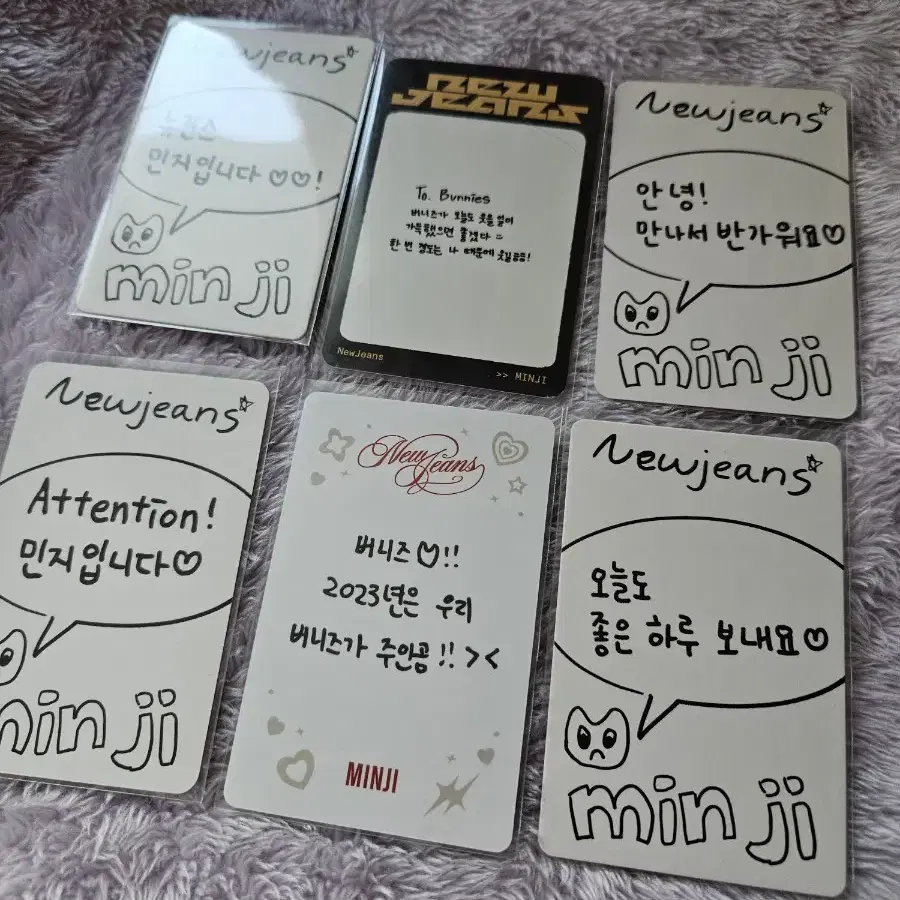 Newjeans
뉴진스
민지입니다♡♡!
min ji
New
Jeans
To. Bunnies
버니즈가 오늘도 웃을 일이
가득했으면 좋겠다
한 번 정도는 나 때문에 웃길!
NewJeans
>> MINJI
Newjeans
안녕!
만나서 반가워요♡
min ji
Newjeans
Attention!
민지입니다♡
min ji
NewJeans
버니즈♡!!
2023년은 우리
버니즈가 주인공!! ><
MINJI
Newjeans
오늘도
좋은 하루 보내요♡
min ji